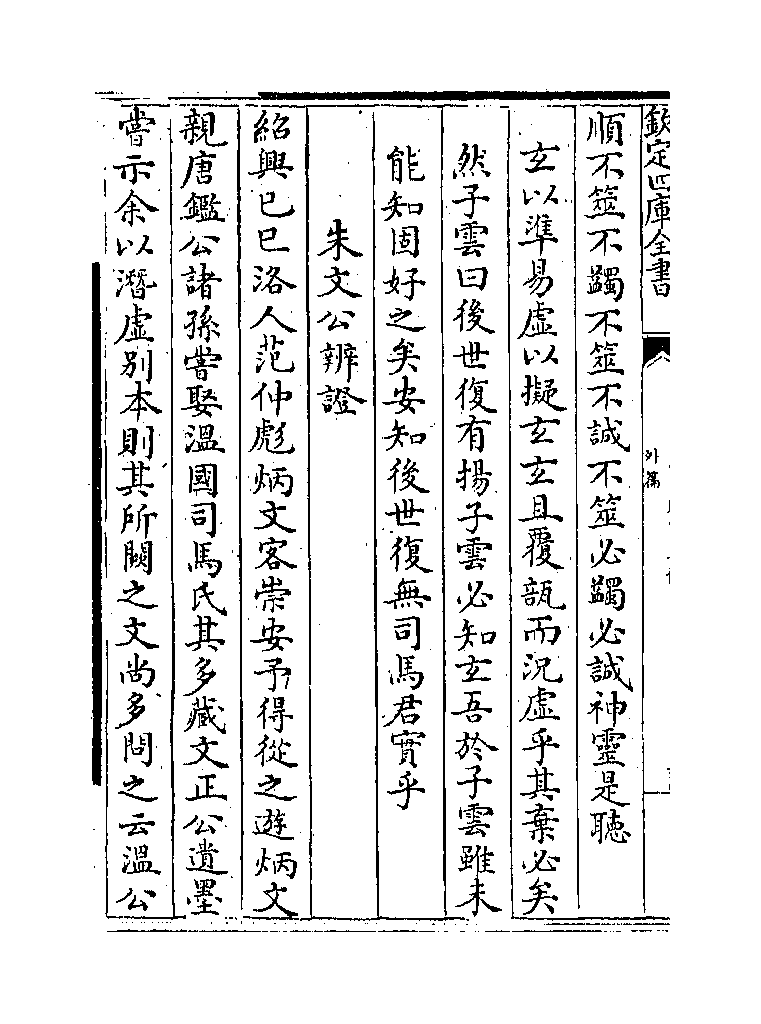 欽定四庫全書
外篇
順不筮不蠲不筮不誠不筮必蠲必誠神靈是聽
玄以準易虛以擬玄玄且覆瓿而況虛乎其棄必矣
然子雲曰後世復有揚子雲必知玄吾於子雲雖未
能知固好之矣安知後世復無司馬君實乎
朱文公辨證
紹興己巳洛人范仲彪炳文客崇安予得從之遊炳文
親唐鑑公諸孫嘗娶溫國司馬氏其多藏文正公遺墨
嘗示余以潛虛别本則其所闕之文尚多問之云溫公